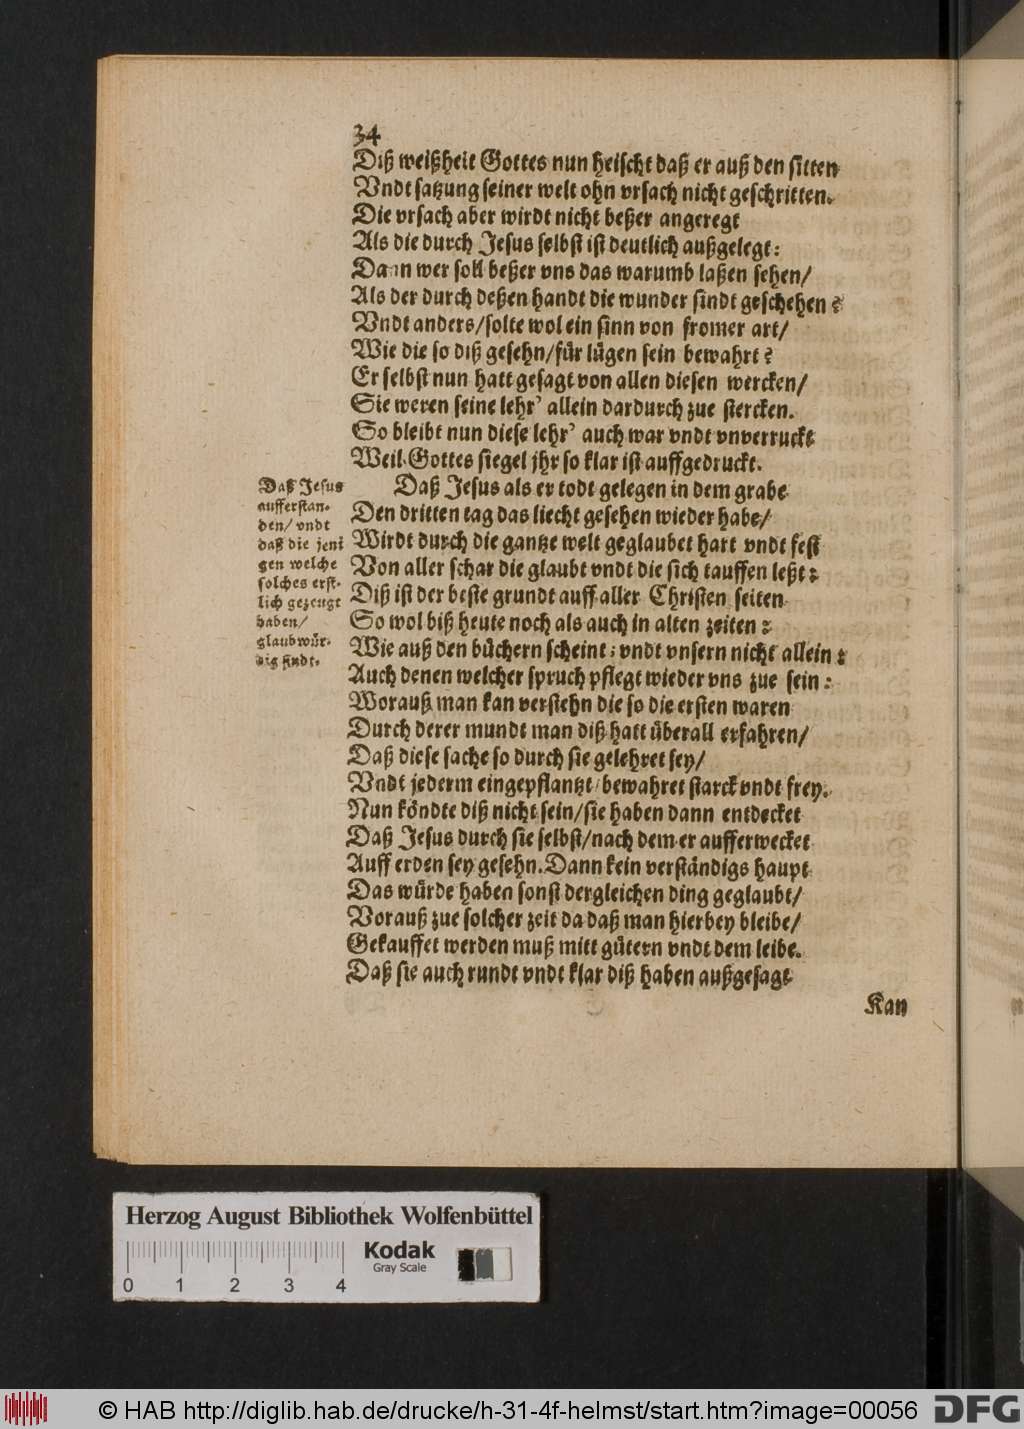 34
Diß weißheit Gottes nun heischt daß er auß den sitten
Vndt satzung seiner welt ohn vrsach nicht geschritten.
Die vrsach aber wirdt nicht beßer angeregt
Als die durch Jesus selbst ist deutlich außgelegt:
Dann wer soll beßer vns das warumb laßen sehen/
Als der durch deßen handt die wunder sindt geschehen?
Vndt anders/solte wol ein sinn von fromer art/
Wie die so diß gesehn/für lügen sein bewahrt?
Er selbst nun hatt gesagt von allen diesen wercken/
Sie weren seine lehr' allein dardurch zue stercken.
So bleibt nun diese lehr' auch war vndt vnverruckt
Weil Gottes siegel jhr so klar ist auffgedruckt.
Daß Jesus
aufferstan-
den/ vndt
daß die jeni
gen welche
solches erst-
lich gezeugt
haben/
glaubwür-
dig sindt.
Daß Jesus als er todt gelegen in dem grabe
Den dritten tag das liecht gesehen wieder habe/
Wirdt durch die gantze welt geglaubet hart vndt fest
Von aller schar die glaubt vndt die sich tauffen leßt:
Diß ist der beste grundt auff aller Christen seiten
So wol biß heute noch als auch in alten zeiten:
Wie auß den büchern scheint; vndt vnsern nicht allein:
Auch denen welcher spruch pflegt wieder vns zue sein:
Worauß man kan verstehn die so die ersten waren
Durch derer mundt man diß hatt überall erfahren/
Daß diese sache so durch sie gelehret sey/
Vndt jederm eingepflantzt/bewahret starck vndt frey.
Nun köndte diß nicht sein/sie haben dann entdecket
Daß Jesus durch sie selbst/nach dem er aufferwecket
Auff erden sey gesehn. Dann kein verständigs haupt
Das würde haben sonst dergleichen ding geglaubt/
Vorauß zue solcher zeit da daß man hierbey bleibe/
Gekauffet werden muß mitt gütern vndt dem leibe.
Daß sie auch rundt vndt klar diß haben außgesagt
Kan
Herzog August Bibliothek Wolfenbüttel
Kodak
Gray Scale
0 1 2 3 4
© HAB http://diglib.hab.de/drucke/h-31-4f-helmst/start.htm?image=00056
DFG